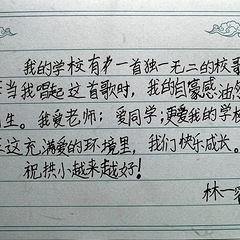 我的学校有一首独一无二的校歌
当我唱起这首歌时，我的自豪感油然
生。我爱老师；爱同学；更爱我的学校
这充满爱的环境里，我们快乐成长。
祝拱小越来越好！
林一